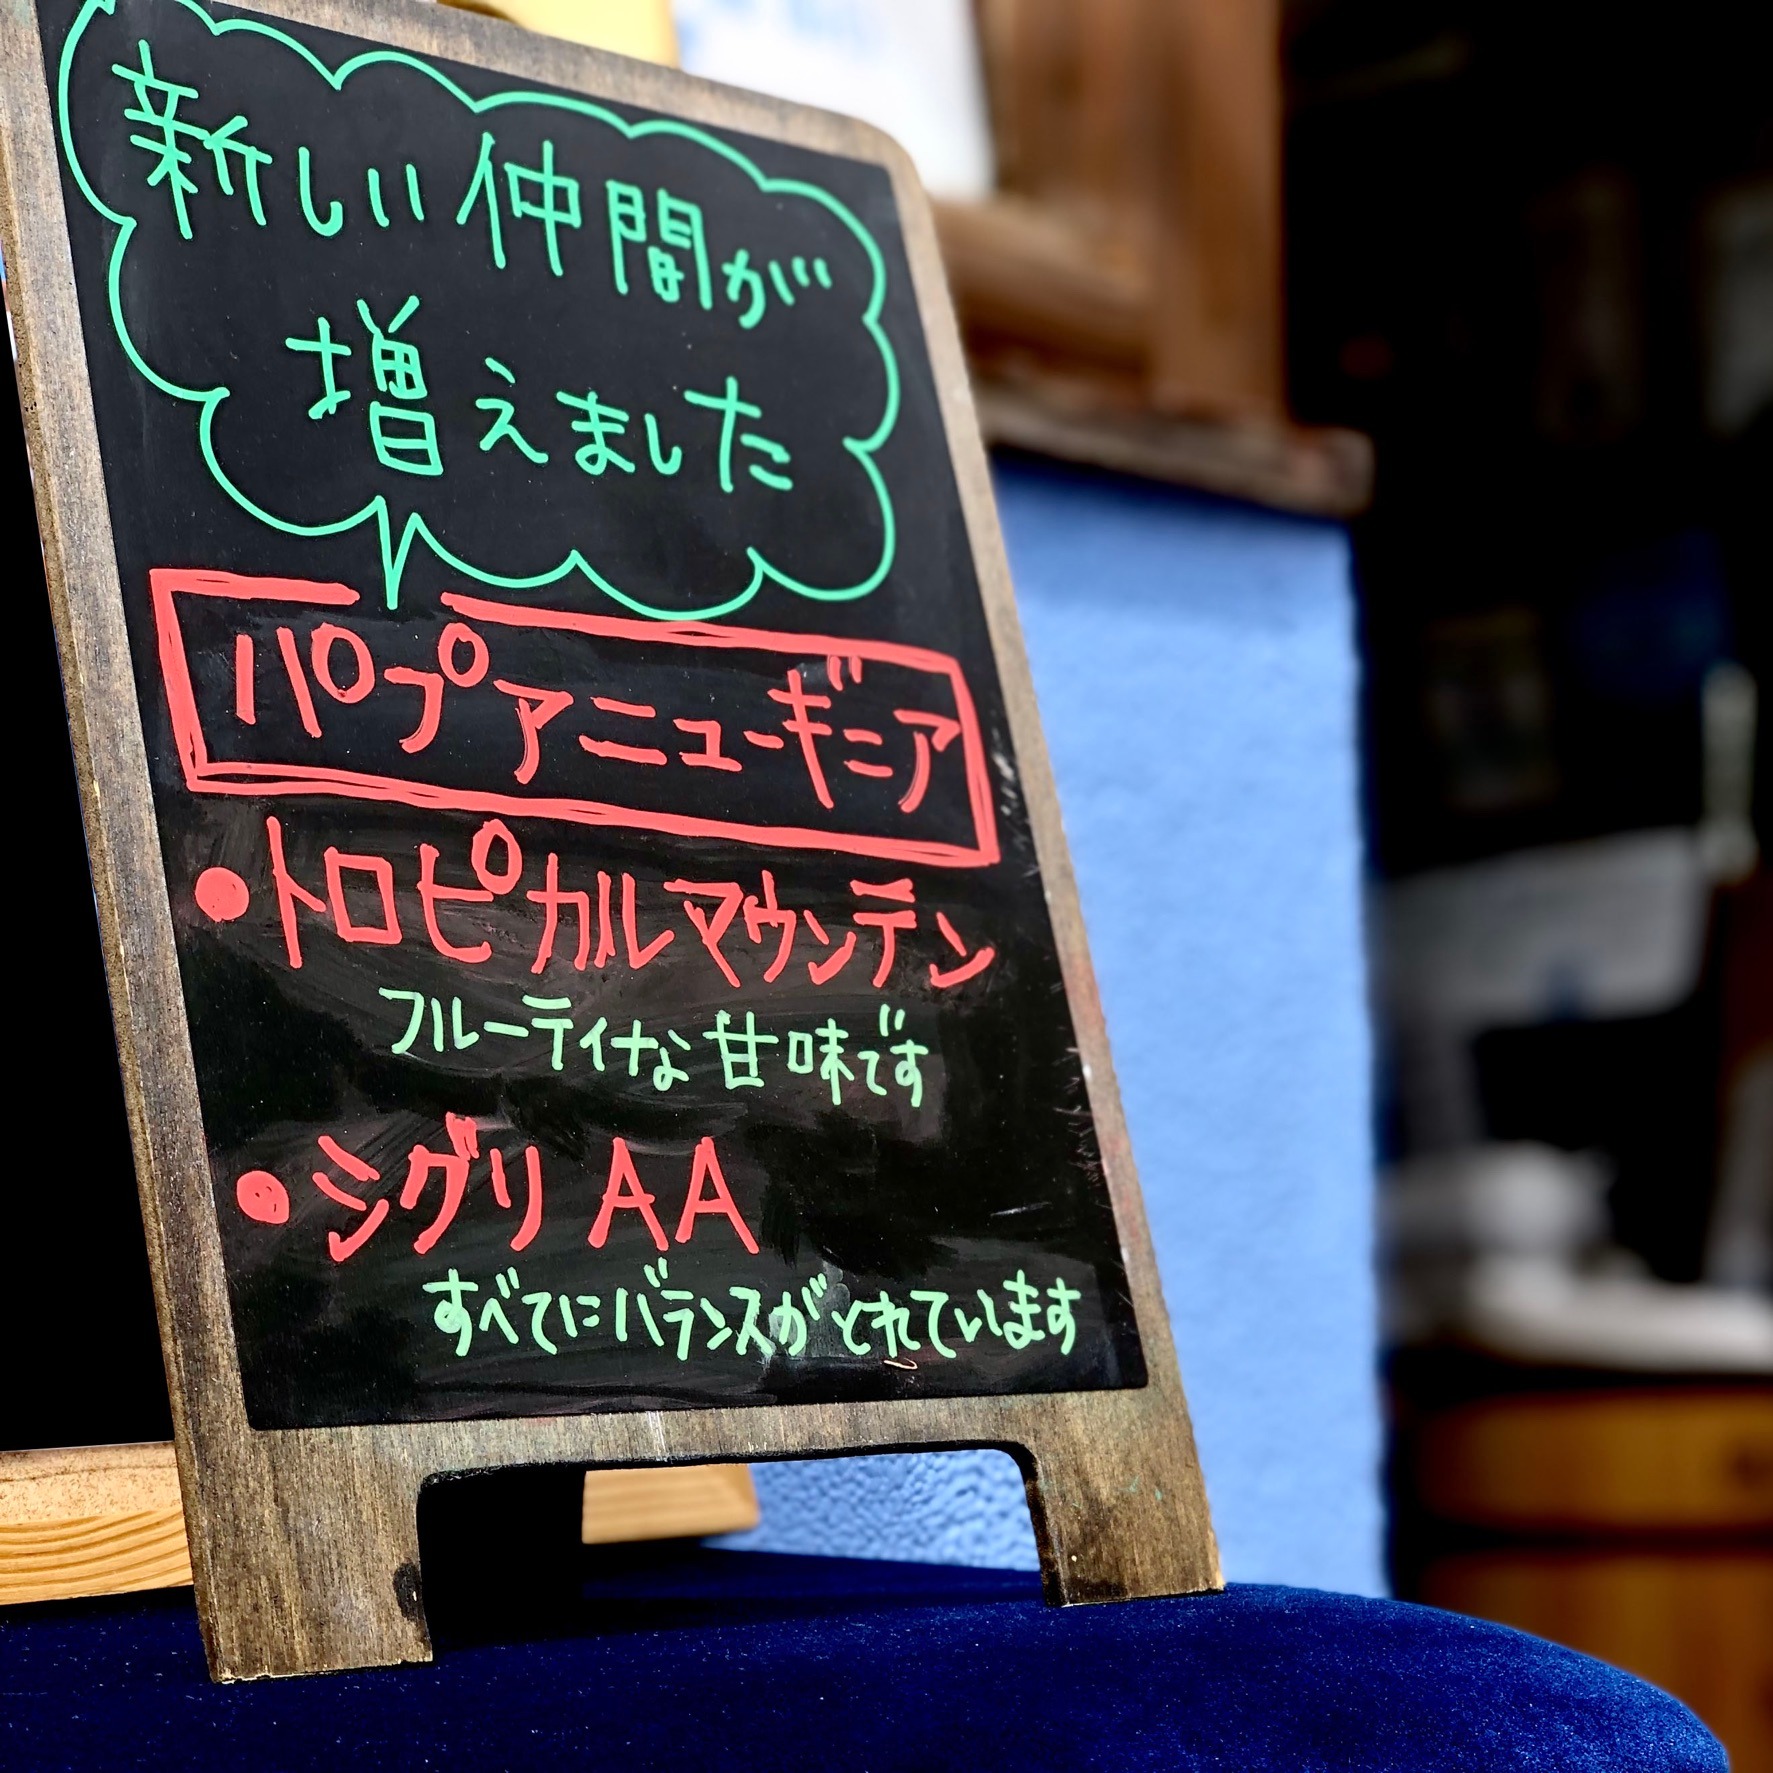 新しい仲間が
増えました
パプアニューギニア
●トロピカルマウンテン
フルーティな甘味です
●シグリAA
すべてにバランスがとれています